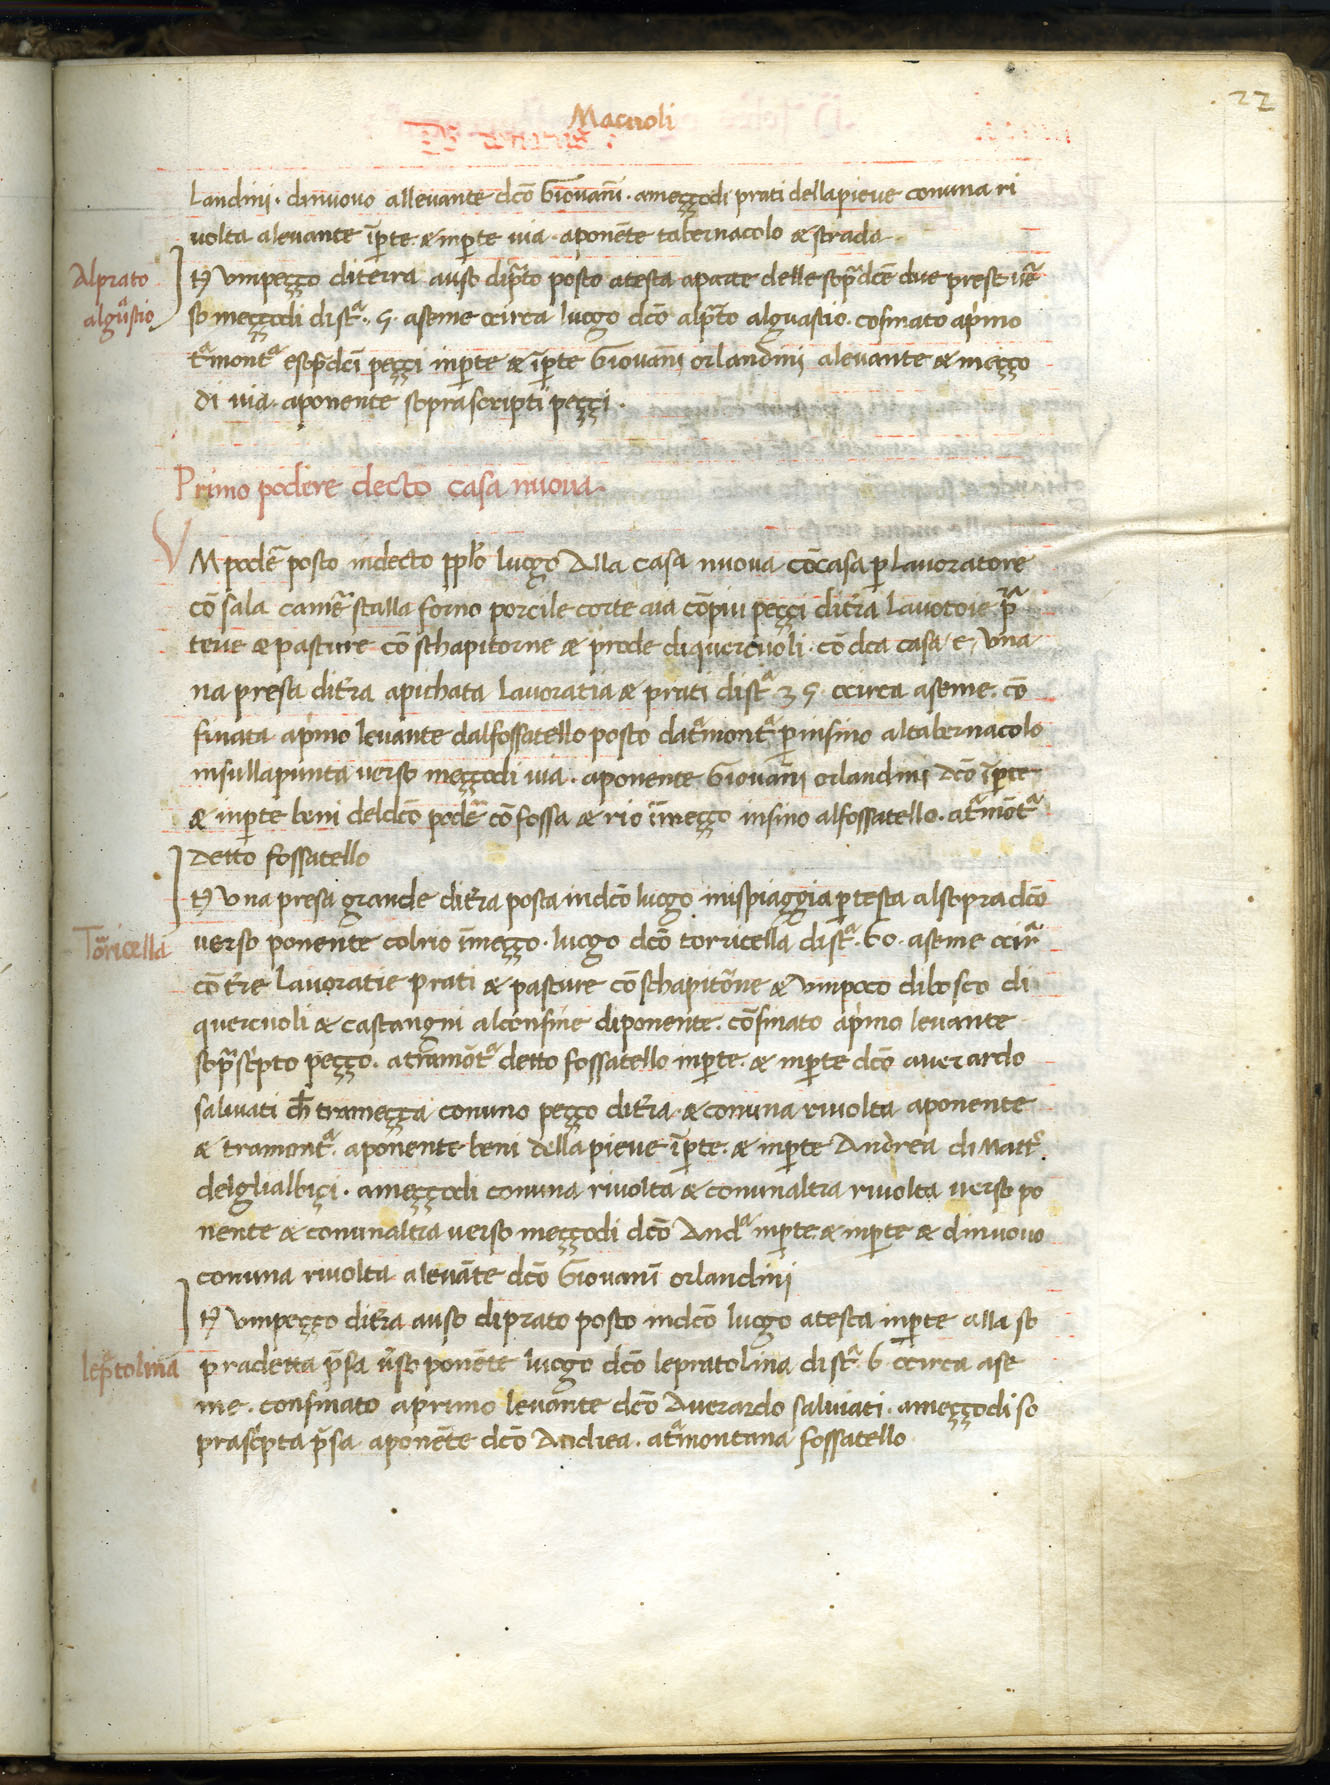 22
Macuoli
landini · dinuovo allevante dc̄o Giovan̄i · ameççodi prati dellapieve conuna ri
volta alevante īp̄te & inp̄te via · aponēte tabernacolo & strada ·
Alprato
alguͣstio
Jͭ vmpeçço diterra auso dip̄to posto atesta aparte delle sop̄dc̄e due prese
so meççodi distͣ · 5 · aseme circa luogo dc̄o alp̄to alguastio · cōfinato ap̄imo
tͣmontͣ esop̄dc̄i peççi inp̄te & īp̄te Giovan̄i orlandini alevante & meçço
di via · aponente soprascripti peççi ·
Primo podere decto casa nuova ·
VM podē posto indecto pplo luogo Alla casa nuova cōcasa p̄ lavoratore
cō sala camē stalla forno porcile corte aia cōpiu peççi dit̄ra lavotoie p̄ͣ
teve & pasture cō schapitorne & prode diquercuoli · cō dca casa e, vna
na presa dit̄ra apichata lavoratia & prati distͣ 35 · circa aseme · cō
finata ap̄imo levante dalfossatello posto datͣmontͣ p̄ insino altabernacolo
insullapunta verso meççodi via · aponente Giovan̄i orlandini dc̄o īp̄te
& inp̄te beni deldc̄o podē cō fossa & rio īmeçço insino alfossatello · atͣmōtͣ
detto fossatello
Jͭ vna presa grande dit̄ra posta indc̄o luogo inispiaggia p̄ testa alsopradc̄o
Torricella
verso ponente colrio īmeçço · luogo dc̄o torricella distͣ · 60 · aseme circͣ
cō t̄re lavoratie prati & pasture cō schapitōne & vmpoco dibosco di
quercuoli & castangni alconfine diponente · cōfinato ap̄imo levante
sop̄sc̄pto peçço · atramōtͣ detto fossatello inp̄te · & inp̄te dc̄o averardo
salviati ch̄ trameçça conuno peçço dit̄ra & conuna rivolta aponente
& tramontͣ · aponente beni della pieve īp̄te · & inp̄te Andrea di Matt̄ ·
deglialbiçi · ameççodi conuna rivolta & conunaltra rivolta verso po
nente & conunaltra verso meççodi dc̄o Andͣ inp̄te & inp̄te & dinuovo
conuna rivolta alevāte dc̄o Giovan̄i orlandini
Jͭ vmpeçço dit̄ra auso diprato posto indc̄o luogo atesta inp̄te alla so
lep̄tolina
pradetta p̄sa v̄so ponēte luogo dc̄o lepratolina distͣ 6 circa ase
me · confinato aprimo levante dc̄o Averardo salviati · ameççodi so
prasc̄pta p̄sa aponēte dc̄o Andrea · atͣmontana fossatello